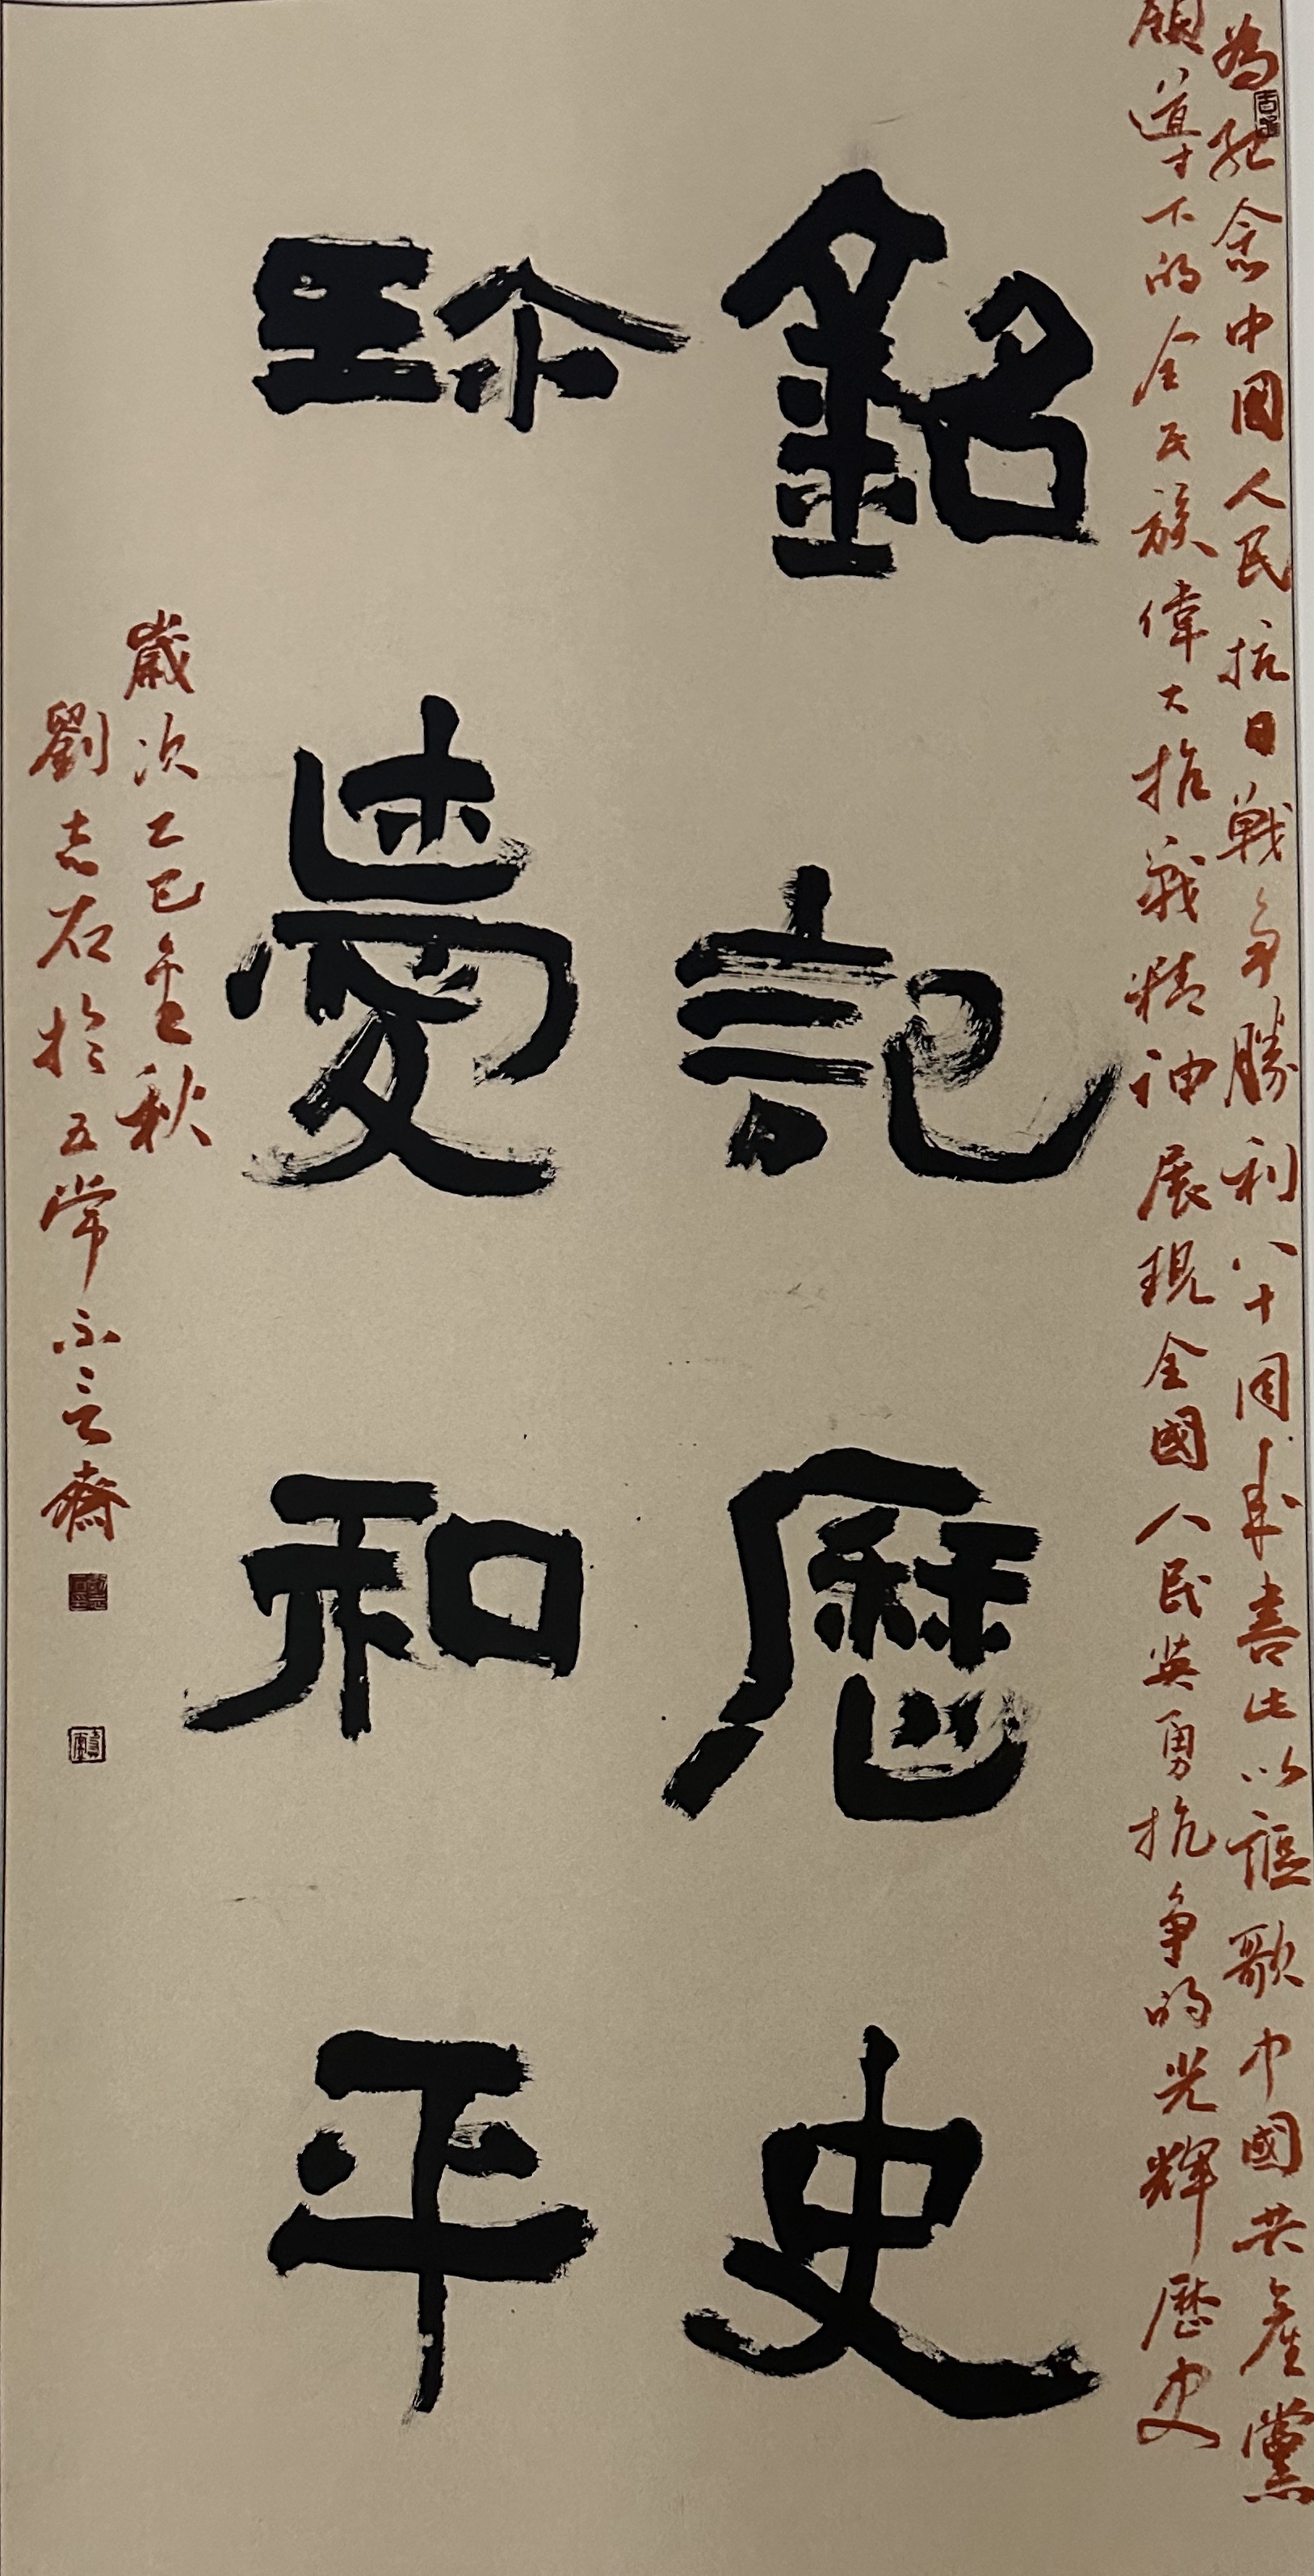 為紀念中国人民抗日戰争勝利八十周年書此以謳歌中國共産黨
領導下的全民族偉大抗戰精神展現全國人民英勇抗争的光輝歷史
銘記歷史
珎愛和平
歲次乙巳金秋
劉志石於五常不言齋